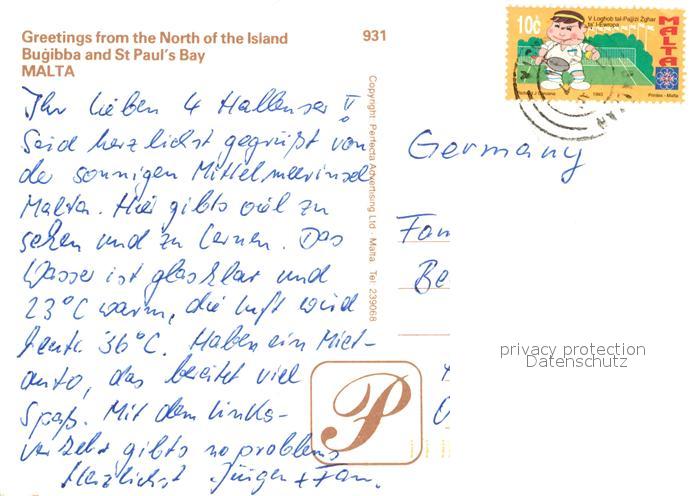 Greetings from the North of the Island
Buġibba and St Paul's Bay
MALTA
931
10c
V Logħob tal-Pajjiżi Żgħar
ta' l-Ewropa
MALTA
1993
Printex - Malta
Copyright Perfecta Advertising Ltd - Malta Tel: 239068
Ihr lieben 4 Hallenser!
Seid herzlichst gegrüßt von
der sonnigen Mittelmeerinsel
Malta. Hier gibts viel zu
sehen und zu lernen. Das
Wasser ist glasklar und
23°C warm, die Luft wird
heute 36°C. Haben ein Miet-
auto, das bereitet viel
Spaß. Mit dem Links-
verkehr gibts no problems
Herzlichst Jürgen + Fam.
Germany
Fam
Be
P
privacy protection
Datenschutz